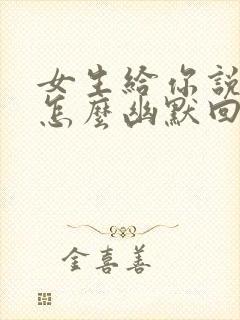 女生給你說
怎麼幽默回
金喜善